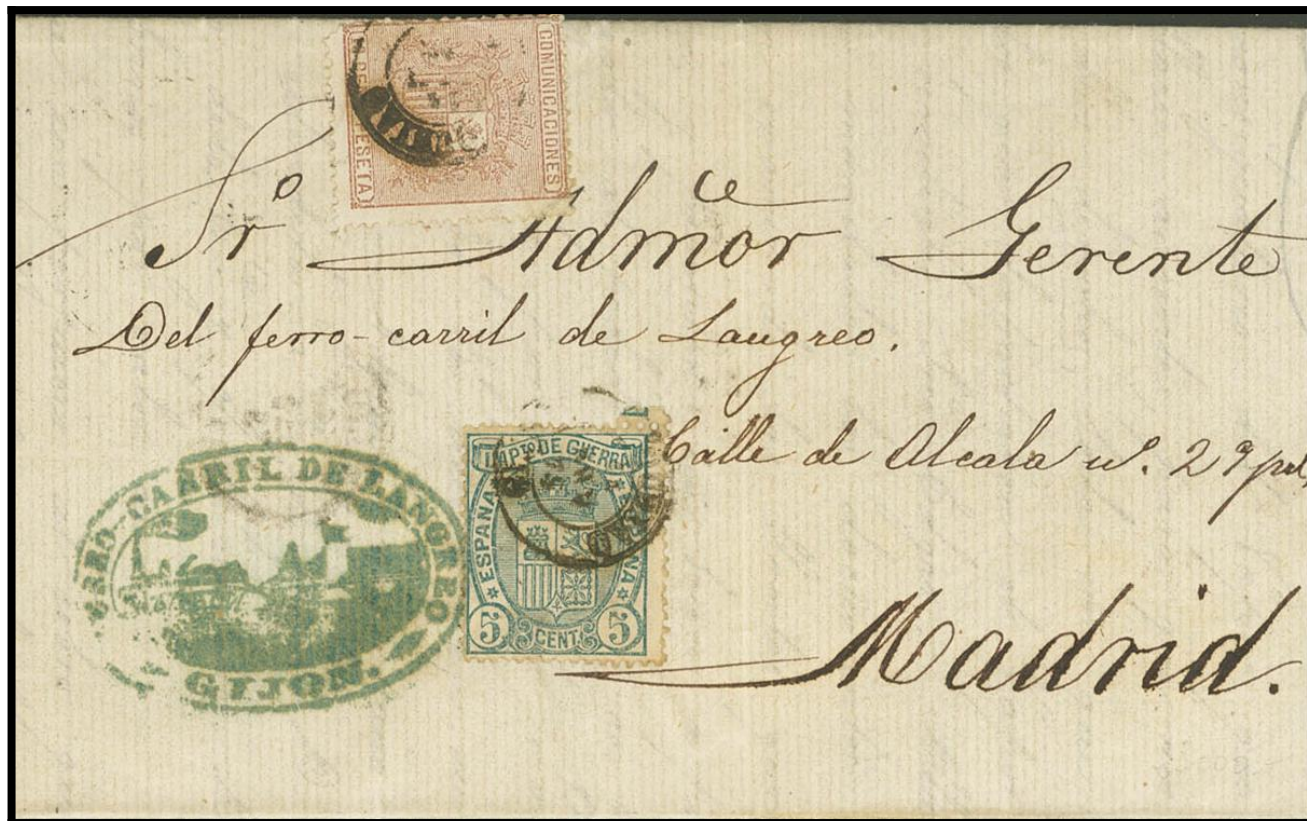 COMUNICACIONES
PESETA
Sr. Admor Gerente
Del ferro-carril de Langreo.
Calle de Alcala nº. 29
Madrid.
IMPTO DE GUERRA
ESPAÑA
5 CENT. 5
FERRO-CARRIL DE LANGREO
GIJON.